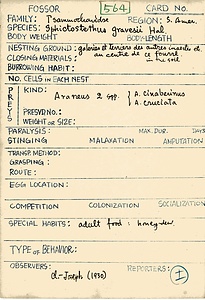 FOSSOR 564 CARD NO.
FAMILY: Psammocharidae REGION: S. Amer.
SPECIES: Sphictostethus gravesii Hal.
BODY WEIGHT BODY-LENGTH
NESTING GROUND: galeries et terriers des autres insectes et
CLOSING MATERIALS: au centre de ce fourré
BURROWING HABIT: in the soil
NO. CELLS IN EACH NEST
PREYS
KIND: Araneus 2 spp. { A. cinaberinus
A. cruciata
PRESVD NO:
WEIGHT OR SIZE:
PARALYSIS: MAX. DUR. DAYS
STINGING MALAXATION AMPUTATION
TRANSP. METHOD:
GRASPING:
ROUTE:
EGG LOCATION:
COMPETITION COLONIZATION SOCIALIZATION
SPECIAL HABITS: adult food: honey-dew.
TYPE OF BEHAVIOR:
OBSERVERS: REPORTERS: I
Cl.-Joseph (1930)